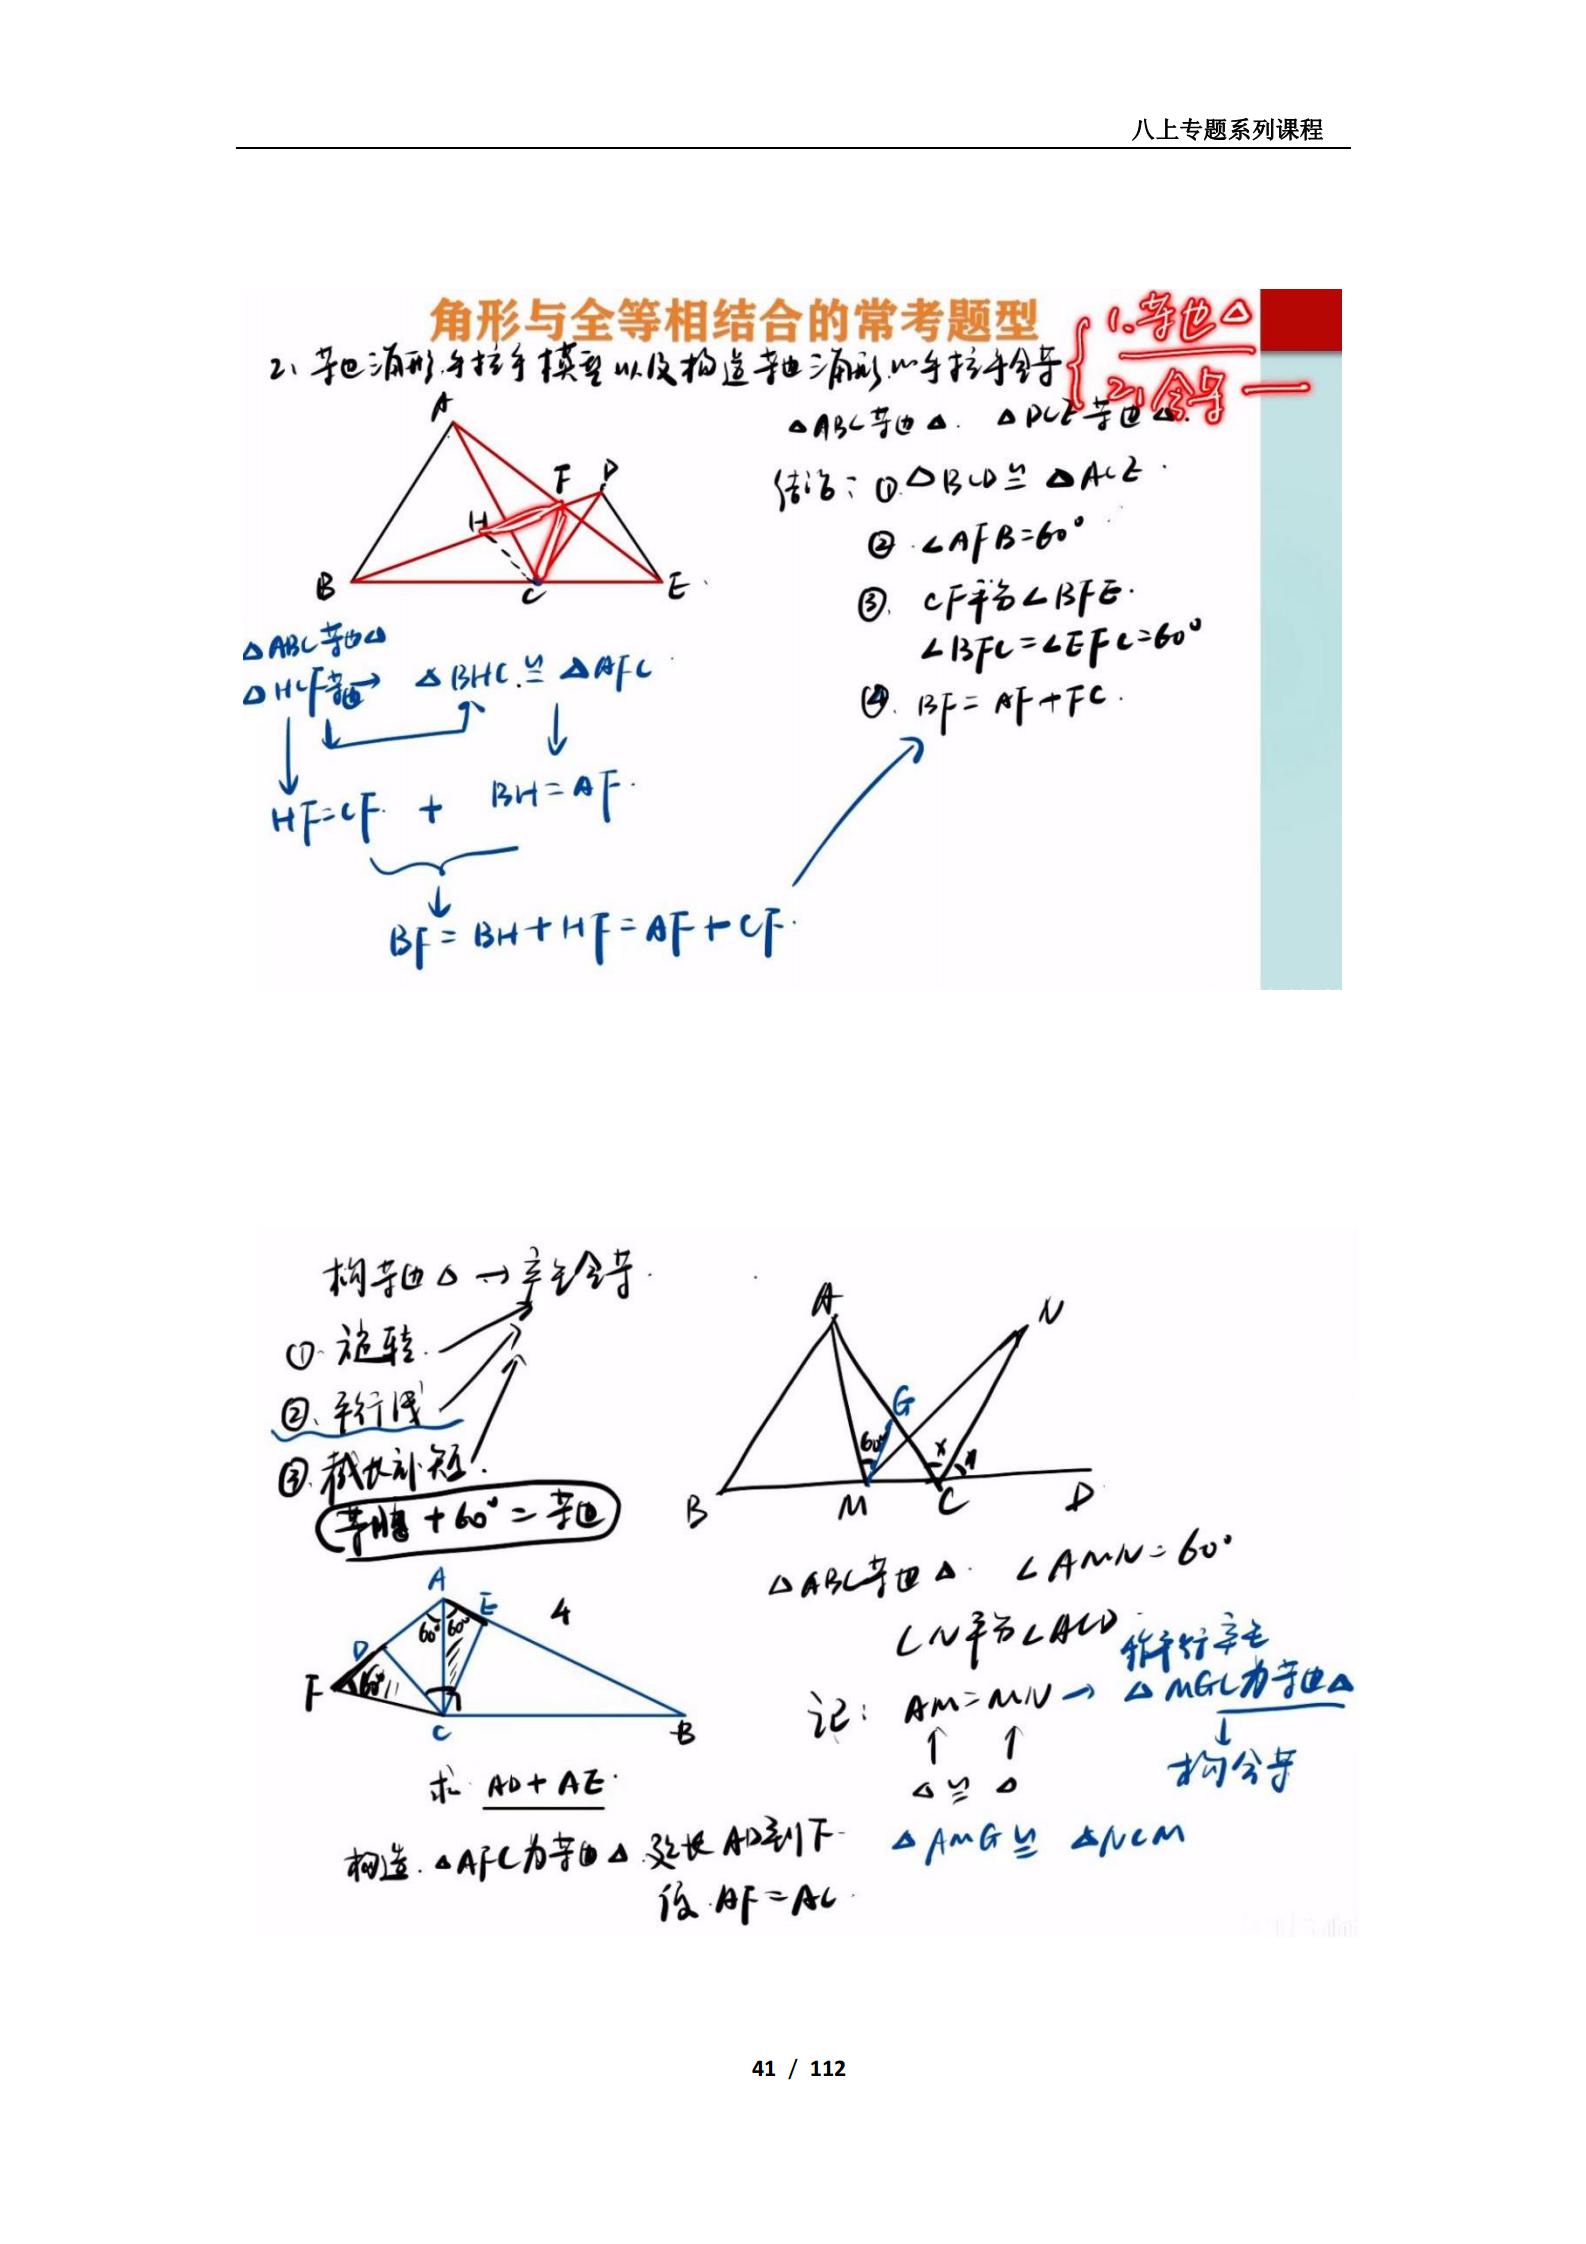 八上专题系列课程
角形与全等相结合的常考题型
1.等边△
2.全等
2、等边三角形手拉手模型以及构造等边三角形的手拉手全等
△ABC等边△. △DCE等边△.
结论: ①.△BCD≌△ACE.
②.∠AFB=60°
③. CF平分∠BFE.
∠BFC=∠EFC=60°
④. BF=AF+FC.
A
F
D
H
B
C
E
△ABC等边△
△HCF等边→ △BHC.≌△AFC
HF=CF. + BH=AF.
BF=BH+HF=AF+CF.
构等边△→产生全等.
①.旋转.
②、平行线
③.截长补短.
等腰+60°=等边
A
N
G
60°
x
x
B
M
C
D
△ABC等边△. ∠AMN=60°
CN平分∠ACD
作平行产生
记: AM=MN→ △MGC为等边△
△≌△
构全等
△AMG≌△NCM
A
E
4
60°
60°
D
F
60°
C
B
求 AD+AE.
构造.△AFC为等边△.延长AD到F
使.AF=AC.
41 / 112